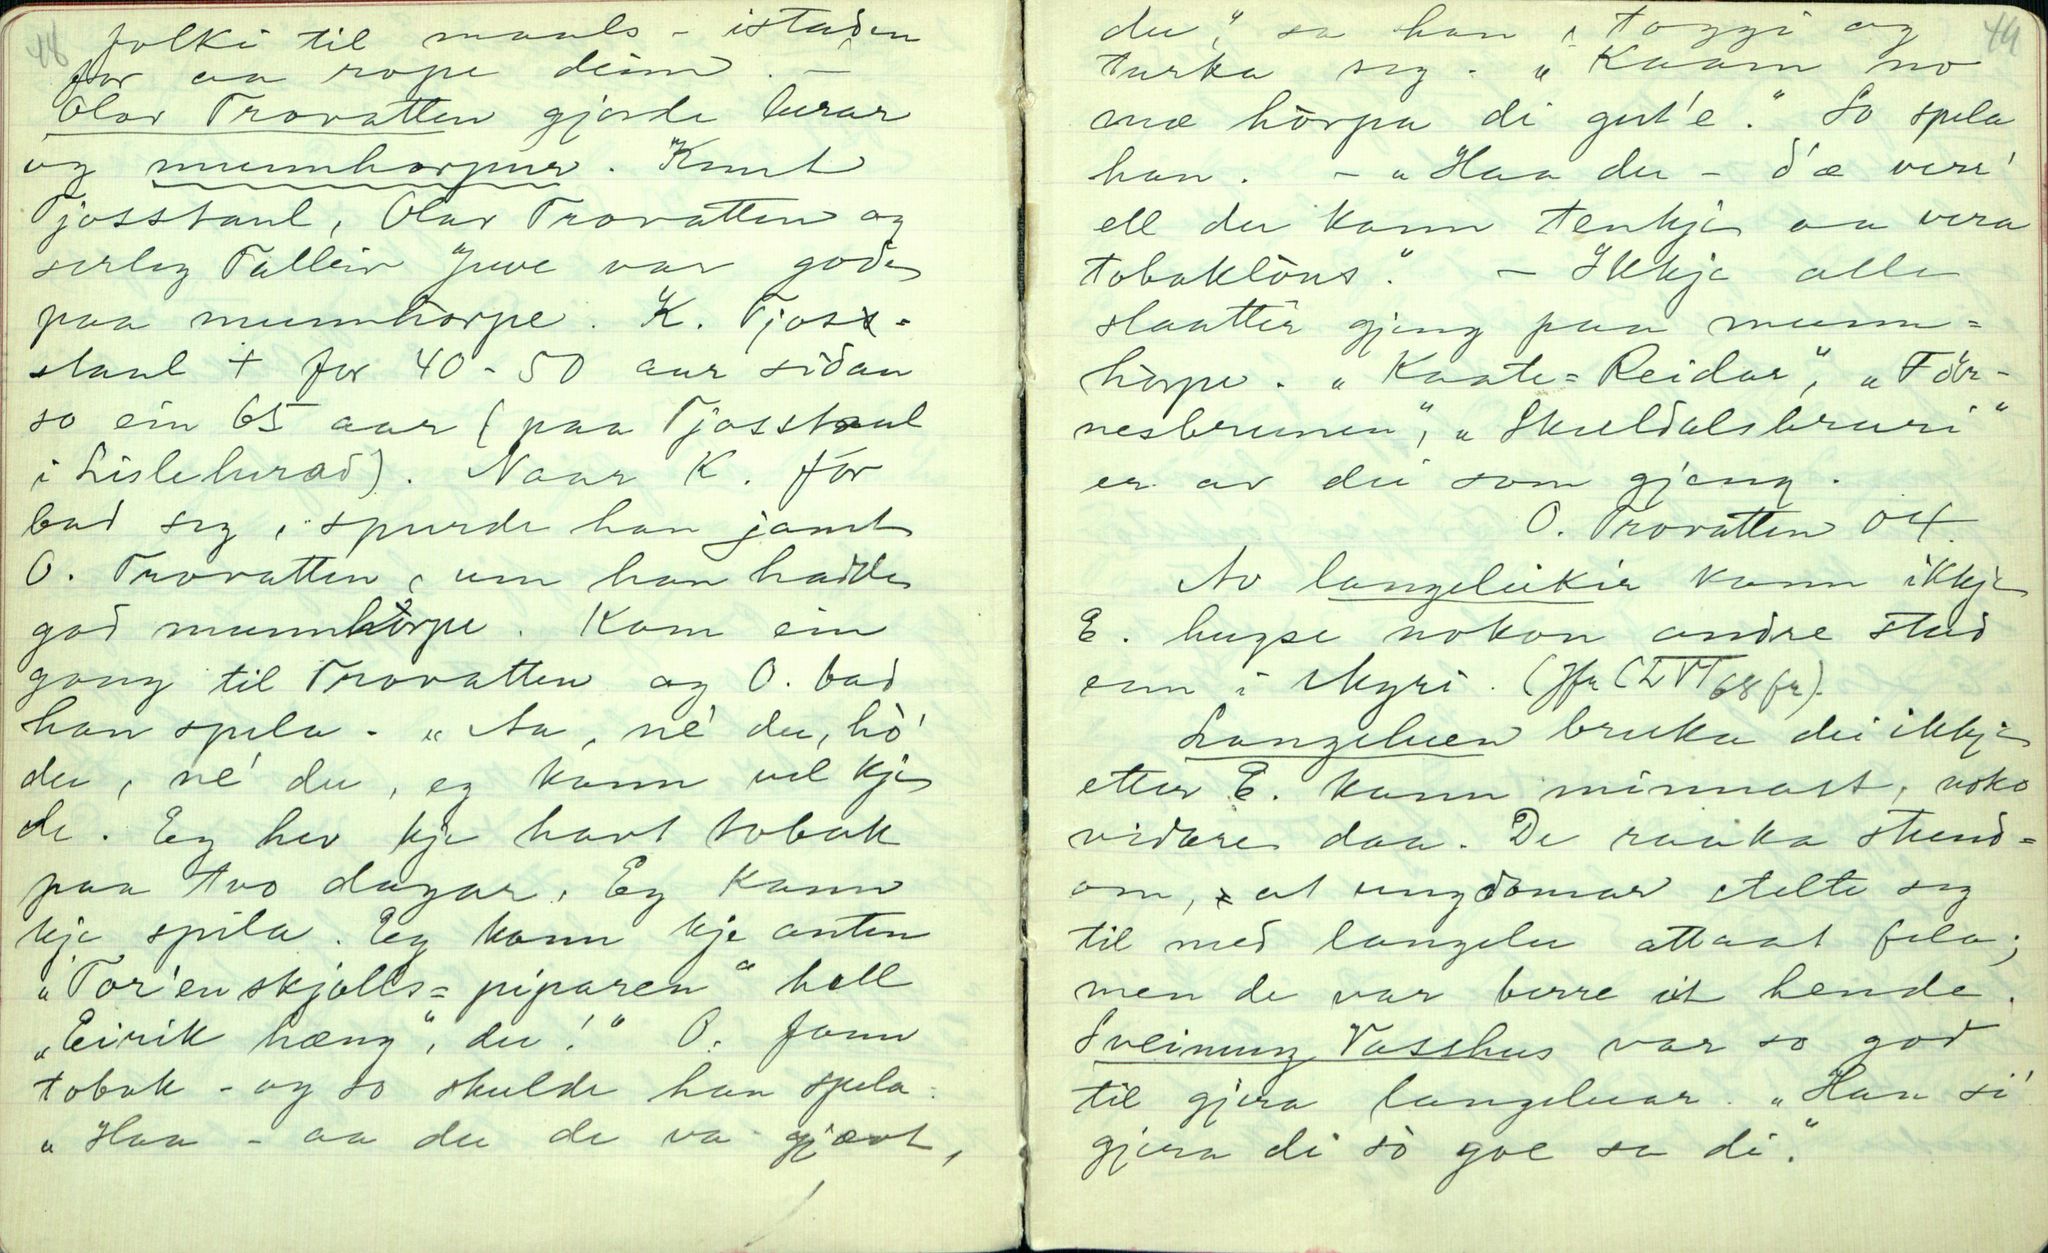 48
folki til maals - istaden
for aa rope deim. -
Olav Trovatten gjorde lurar
og munnhorpur. Knut
Tjosstaul, Olav Trovatten og
serleg Talleiv Juve var gode
paa munnhorpe. K. Tjos-
staul + for 40 - 50 aar sidan
so ein 65 aar (paa Tjosstaul
i Lisleherad). Naar K. for
bad seg, spurde han jamt
O. Trovatten, um han hadde
god munnhòrpe. Kom ein
gong til Trovatten og O. bad
han spela. "Aa, né du, hò
du, né du, eg kann vel kje
de. Eg hev kje havt tobak
paa tvo dagar. Eg kann
kje spila. Eg kann kje anten
"Tor'enskjolls=piparen" hell
"Eirik hæng", du!" O. fann
tobak - og so skulde han spela.
"Haa - aa du de va gjævt,
49
du," sa han, toggi og
turka seg. "Kaam no
mæ hòrpa di gut'e." So spela
han. - "Haa du - d'æ verr'
ell du kann tenkje aa vera
tobaklòus". - Ikkje alle
slaattir gjeng paa munn=
hòrpe. "Kaate=Reidar", "Før-
nesbrunen", "Skuldalsbruri"
er av dei som gjeng.
O. Trovatten 04.
Av langeleikir kann ikkje
E. hugse nokon andre stad
enn i Mgri. (Jfr CLVI 68 fr).
Langeluen bruka dei ikkje
etter E. kann minnast, noko
vidare daa. De raaka stund=
om, at ungdomar stelte seg
til med langelu attaat fela;
men de var berre eit hende.
Sveinung Vasshus var so god
til gjera langeluar. "Han si'
gjera di sò goe sa di."